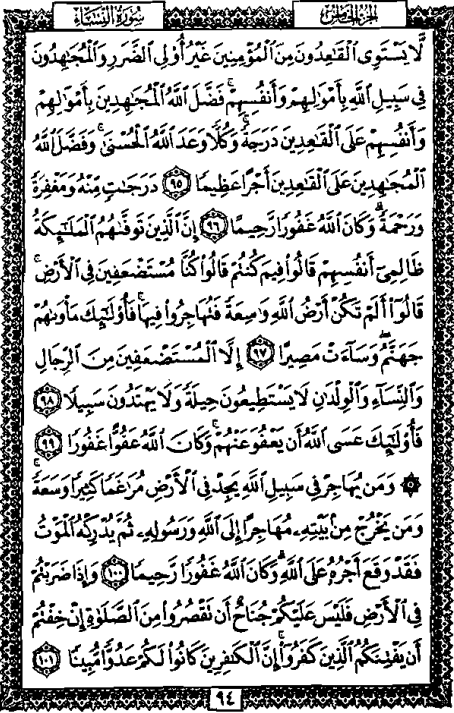 سُورَةُ النِّسَاءِ الجُزءُ الخَامِسُ
لَّا يَسْتَوِى الْقَاعِدُونَ مِنَ الْمُؤْمِنِينَ غَيْرُ أُو۟لِى الضَّرَرِ وَالْمُجَاهِدُونَ
فِى سَبِيلِ اللَّهِ بِأَمْوَالِهِمْ وَأَنفُسِهِمْ ۚ فَضَّلَ اللَّهُ الْمُجَاهِدِينَ بِأَمْوَالِهِمْ
وَأَنفُسِهِمْ عَلَى الْقَاعِدِينَ دَرَجَةً ۚ وَكُلًّا وَعَدَ اللَّهُ الْحُسْنَىٰ ۚ وَفَضَّلَ اللَّهُ
الْمُجَاهِدِينَ عَلَى الْقَاعِدِينَ أَجْرًا عَظِيمًا ٩٥ دَرَجَاتٍ مِّنْهُ وَمَغْفِرَةً
وَرَحْمَةً ۚ وَكَانَ اللَّهُ غَفُورًا رَّحِيمًا ٩٦ إِنَّ الَّذِينَ تَوَفَّىٰهُمُ الْمَلَٰٓئِكَةُ
ظَالِمِىٓ أَنفُسِهِمْ قَالُوا۟ فِيمَ كُنتُمْ ۖ قَالُوا۟ كُنَّا مُسْتَضْعَفِينَ فِى الْأَرْضِ ۚ
قَالُوٓا۟ أَلَمْ تَكُنْ أَرْضُ اللَّهِ وَٰسِعَةً فَتُهَاجِرُوا۟ فِيهَا ۚ فَأُو۟لَٰٓئِكَ مَأْوَىٰهُمْ
جَهَنَّمُ ۖ وَسَآءَتْ مَصِيرًا ٩٧ إِلَّا الْمُسْتَضْعَفِينَ مِنَ الرِّجَالِ
وَالنِّسَآءِ وَالْوِلْدَٰنِ لَا يَسْتَطِيعُونَ حِيلَةً وَلَا يَهْتَدُونَ سَبِيلًا ٩٨
فَأُو۟لَٰٓئِكَ عَسَى اللَّهُ أَن يَعْفُوَ عَنْهُمْ ۚ وَكَانَ اللَّهُ عَفُوًّا غَفُورًا ٩٩
۞ وَمَن يُهَاجِرْ فِى سَبِيلِ اللَّهِ يَجِدْ فِى الْأَرْضِ مُرَٰغَمًا كَثِيرًا وَسَعَةً ۚ
وَمَن يَخْرُجْ مِنۢ بَيْتِهِۦ مُهَاجِرًا إِلَى اللَّهِ وَرَسُولِهِۦ ثُمَّ يُدْرِكْهُ الْمَوْتُ
فَقَدْ وَقَعَ أَجْرُهُۥ عَلَى اللَّهِ ۗ وَكَانَ اللَّهُ غَفُورًا رَّحِيمًا ١٠٠ وَإِذَا ضَرَبْتُمْ
فِى الْأَرْضِ فَلَيْسَ عَلَيْكُمْ جُنَاحٌ أَن تَقْصُرُوا۟ مِنَ الصَّلَوٰةِ إِنْ خِفْتُمْ
أَن يَفْتِنَكُمُ الَّذِينَ كَفَرُوٓا۟ ۚ إِنَّ الْكَٰفِرِينَ كَانُوا۟ لَكُمْ عَدُوًّا مُّبِينًا ١٠١
٩٤